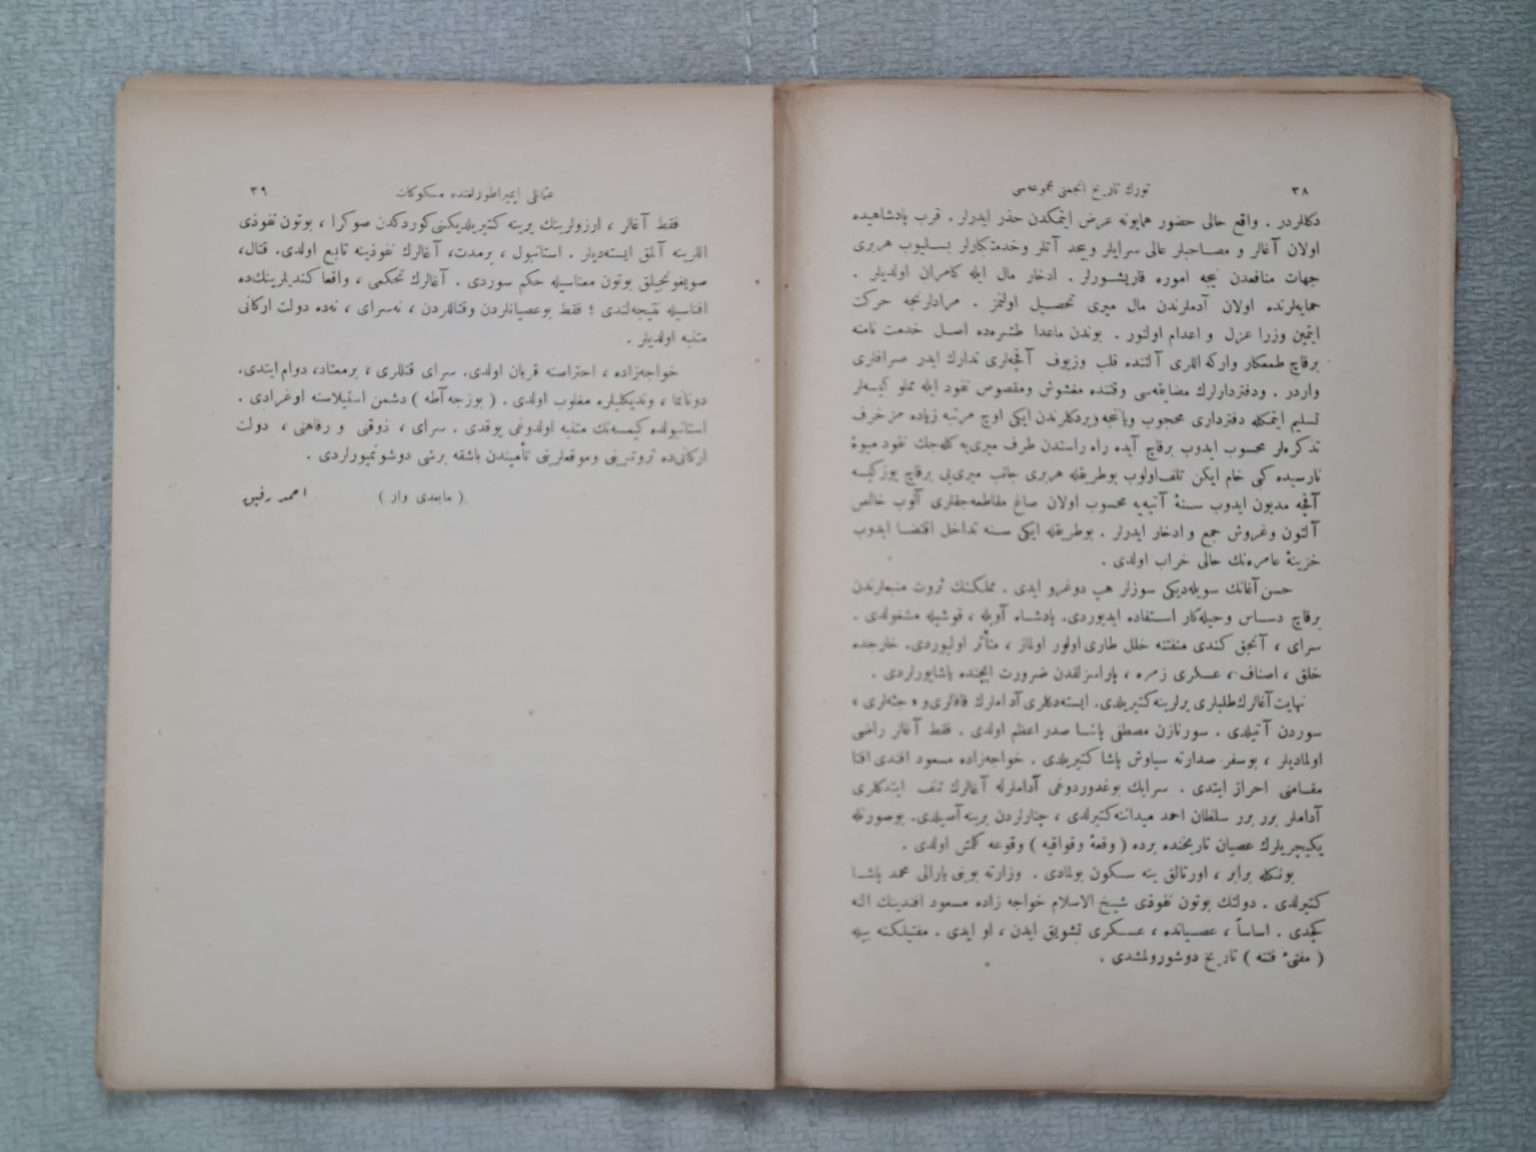 ٣٨
تورك تاريخ انجمنى مجموعه‌سى
دكللردر . واقع حالى حضور همايونه عرض ايتمكدن حذر ايدرلر . قرب پادشاهيده
اولان آغالر و مصاحبلر عالى سرايلر وبيحد آتلر وخدمتكارلر بسليوب هربرى
جهات منافعدن نيجه اموره قاريشورلر . ادخار مال ايله كامران اولديلر .
حمايه‌لرنده اولان آدملرندن مال ميرى تحصيل اولنمز . مرادلرنجه حركت
ايتمين وزرا عزل و اعدام اولنور . بوندن ماعدا طشره‌ده اصل خدمت نامنه
برقاچ طمعكار واركه اللرى آلتنده قلب وزيوف آقچه‌لرى تدارك ايدر صرافلرى
واردر . ودفتردارلرك مضايقه‌سى وقتنده مغشوش ومقصوص نقود ايله مملو كيسه‌لر
تسليم ايتمكله دفتردارى محجوب وياخجه ويردكلرندن ايكى اوچ مرتبه زياده مزخرف
تذكره‌لر محسوب ايدوب برقاچ آيده راه راستدن طرف ميرى‌يه كله‌جك نقود ميوهٔ
نارسيده كبى خام ايكن تلف اولوب بوطريقله هربرى جانب ميرى‌يى برقاچ يوزكيسه
آقچه مديون ايدوب سنهٔ آتيه‌يه محسوب اولان صاغ مقاطعه‌جقلرى آلوب خالص
آلتون وغروش جمع وادخار ايدرلر . بوطريقله ايكى سنه تداخل اقتضا ايدوب
خزينهٔ عامره‌نك حالى خراب اولدى .
حسن آغانك سويله‌ديكى سوزلر هپ دوغرو ايدى . مملكتك ثروت منبعلرندن
برقاچ دساس وحيله‌كار استفاده ايديوردى. پادشاه آويله ، قوشيله مشغولدى .
سراى ، آنجق كندى منفعتنه خلل طارى اولور اولماز ، متأثر اوليوردى. خارجده
خلق ، اصناف ، عسكرى زمره ، پاراسزلقدن ضرورت ايچنده ياشايورلردى .
نهايت آغالرك طلبلرى يرلرينه كتيريلدى. ايسته‌دكلرى آداملرك قافالرى و جثه‌لرى ،
سوردن آتيلدى . سورنازن مصطفى پاشا صدر اعظم اولدى . فقط آغالر راضى
اولماديلر ، بوسفر صدارته سياوش پاشا كتيريلدى . خواجه‌زاده مسعود افندى افتا
مقامنى احراز ايتدى . سرايك بوغدوردوغى آداملرله آغالرك تلف ايتدكلرى
آداملر برر برر سلطان احمد ميداننه كتيرلدى ، چنارلردن برينه آصيلدى. بوصورتله
يكيچريلرك عصيان تاريخنده برده ( وقعهٔ وقواقيه ) وقوعه كلمش اولدى .
بونكله برابر ، اورتالق ينه سكون بولمادى . وزارته بوينى يارالى محمد پاشا
كتيرلدى . دولتك بوتون نفوذى شيخ الاسلام خواجه زاده مسعود افندينك الـه
كچدى . اساساً ، عصيانده ، عسكرى تشويق ايدن ، او ايدى . مفتيلكنه بيله
( مفتىٔ فتنه ) تاريخ دوشورولمشدى .
عثمانلى ايمپراطورلغنده مسكوكات
٣٩
فقط آغالر ، آرزولرينك يرينه كتيريلديكنى كوردكدن صوكرا ، بوتون نفوذى
اللرينه آلمق ايسته‌ديلر . استانبول ، برمدت، آغالرك نفوذينه تابع اولدى. قتال،
صويغونجيلق بوتون معناسيله حكم سوردى . آغالرك تحكمى ، واقعا كنديلرينك‌ده
افناسيله نتيجه‌لندى ؛ فقط بوعصيانلردن وقتاللردن ، نه‌سراى ، نه‌ده دولت اركانى
متنبه اولديلر .
خواجه‌زاده ، احتراصنه قربان اولدى. سراى قتللرى ، برمعتاد، دوام ايتدى.
دونانما ، ونديكليلره مغلوب اولدى . ( بوزجه آطه ) دشمن استيلاسنه اوغرادى .
استانبولده كيمسه‌نك متنبه اولدوغى يوقدى . سراى ، ذوقى و رفاهنى ، دولت
اركانى‌ده ثروتلرينى وموقعلرينى تأميندن باشقه برشى دوشونميورلردى .
( مابعدى وار )
احمد رفيق